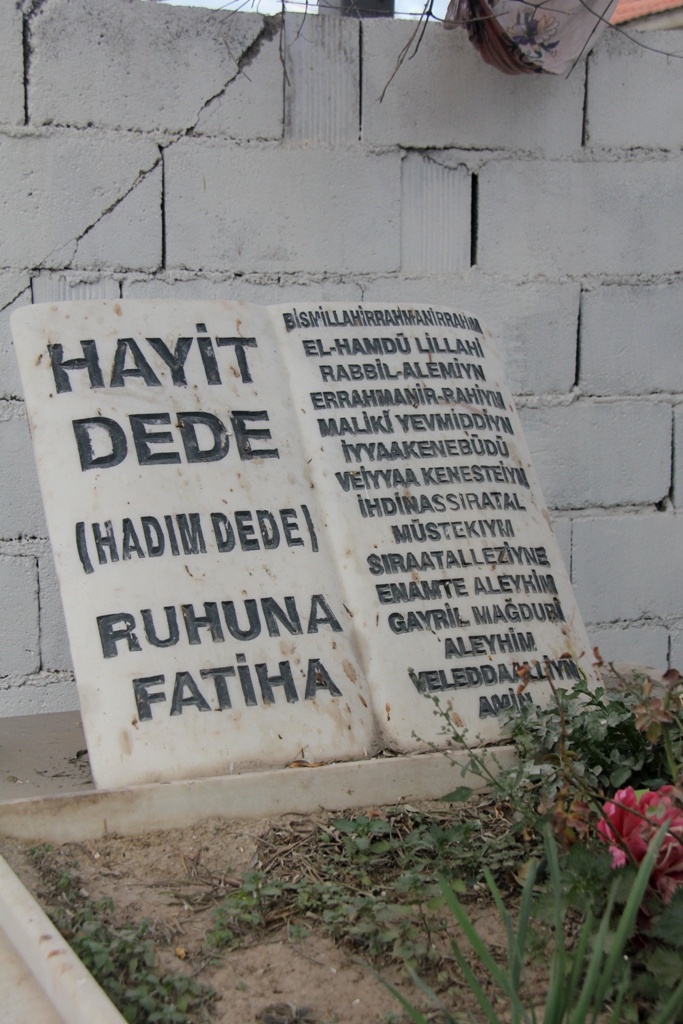 HAYİT
DEDE
(HADIM DEDE)
RUHUNA
FATİHA
BİSMİLLAHİRRAHMANİRRAHİM
EL-HAMDÜ LİLLAHİ
RABBİL-ALEMİYN
ERRAHMANİR-RAHİYM
MALİKİ YEVMİDDİYN
İYYAAKENEBÜDÜ
VEİYYAA KENESTEİYN
İHDİNASSIRATAL
MÜSTEKIYM
SIRAATALLEZİYNE
ENAMTE ALEYHİM
GAYRİL MAĞDUBİ
ALEYHİM
VELEDDAALLİYN
AMİN.